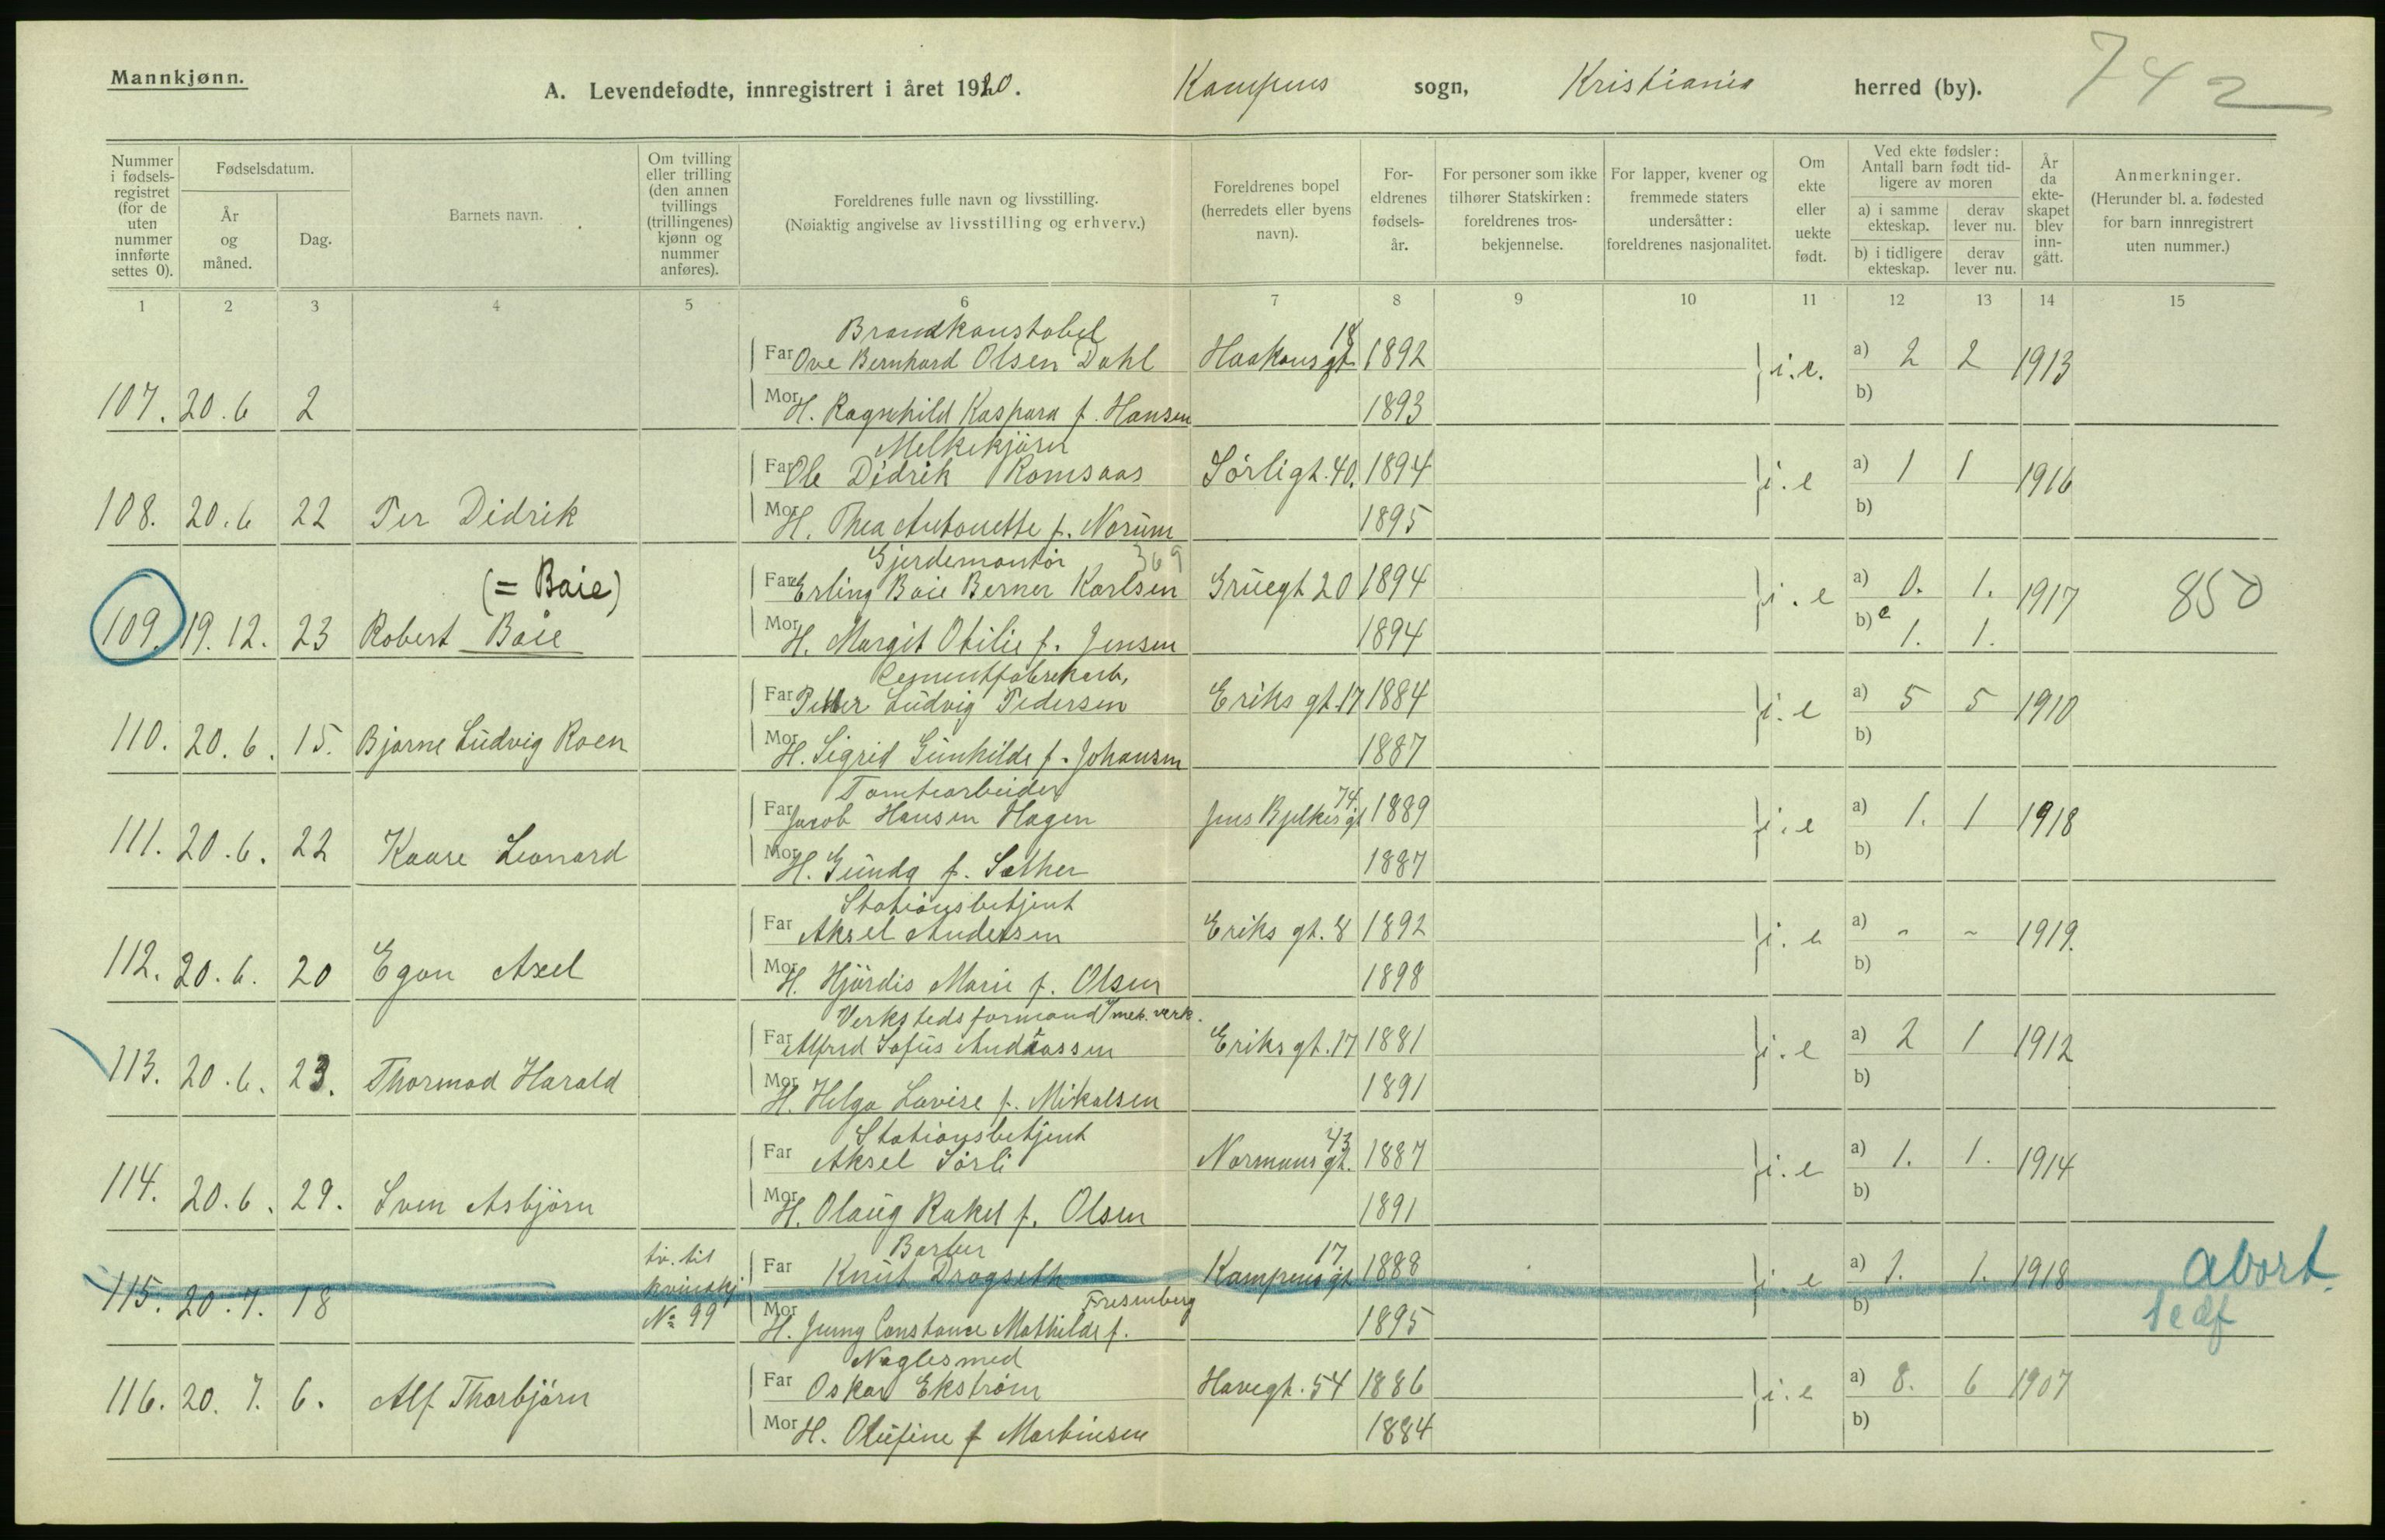 Mannkjønn.
A. Levendefødte, innregistrert i året 1920. Kampens sogn, Kristiania herred (by). 742
Nummer i fødsels-registret (for de uten nummer innførte settes 0).
Fødselsdatum.
År og måned.
Dag.
Barnets navn.
Om tvilling eller trilling (den annen tvillings (trillingenes) kjønn og nummer anføres).
Foreldrenes fulle navn og livsstilling.
(Nøiaktig angivelse av livsstilling og erhverv.)
Foreldrenes bopel (herredets eller byens navn).
For-eldrenes fødsels-år.
For personer som ikke tilhører Statskirken: foreldrenes tros-bekjennelse.
For lapper, kvener og fremmede staters undersåtter: foreldrenes nasjonalitet.
Om ekte eller uekte født.
Ved ekte fødsler: Antall barn født tid-ligere av moren
a) i samme ekteskap. derav lever nu.
b) i tidligere ekteskap. derav lever nu.
År da ekte-skapet blev inn-gått.
Anmerkninger.
(Herunder bl. a. fødested for barn innregistrert uten nummer.)
1 2 3 4 5 6 7 8 9 10 11 12 13 14 15
Brandkonstabel 18
Far Ove Bernhard Olsen Dahl Haakonsgt 1892 i.e. a) 2 2 1913
107. 20.6 2 Mor H. Ragnhild Kaspara f. Hansen 1893 b)
Melkekjører
Far Ole Didrik Romsaas Sörligt. 40. 1894 i.e a) 1 1 1916
108. 20.6 22 Per Didrik Mor H. Thea Antonette f. Norum 1895 b)
Gjerdemontör 369
(= Baie) Far Erling Baie Berner Karlsen Grüegt 20 1894 i.e a) 0. 1. 1917 850
109. 19.12. 23 Robert Baie Mor H. Margit Otilie f. Jensen 1894 b) e 1. 1.
Cementfabrekarb.
Far Petter Ludvig Pedersen Eriks gt. 17 1884 i.e a) 5 5 1910
110. 20.6. 15. Bjarne Ludvig Roen Mor H. Sigrid Gunhilde f. Johansen 1887 b)
Tomtearbeider 74
Far Jacob Hansen Hagen Jens Bjelkesgt 1889 i.e a) 1. 1 1918
111. 20.6. 22 Kaare Leonard Mor H. Gunda f. Sæther 1887 b)
Stationsbetjent
Far Aksel Andersen Eriks gt. 8 1892 i.e a) - - 1919.
112. 20.6. 20 Egon Axel Mor H. Hjördis Marie f. Olsen 1898 b)
Verkstedsformand / mek. verk.
Far Alfred Sofus Andreassen Eriks gt. 17 1881 i.e a) 2 1 1912
113. 20.6. 23. Thormod Harald Mor H. Helga Lovise f. Mikalsen 1891 b)
Stationsbetjent 43
Far Aksel Sörli Normans gt. 1887 i.e a) 1. 1. 1914
114. 20.6. 29. Sven Asbjörn Mor H. Olaug Rakel f. Olsen 1891 b)
tv. til Barber 17
kvinskj Far Knut Dragseth Kampens gt 1888 i.e a) 1. 1. 1918 Abort
115. 20.7. 18 No 99 Mor H. Jenny Constance Mathilde f. Fresenberg 1895 b) 1edf
Naglesmed
Far Oskar Ekström Havegt. 54 1886 i.e a) 8. 6 1907
116. 20. 7. 6. Alf Thorbjörn Mor H. Olufine f Martinsen 1884 b)